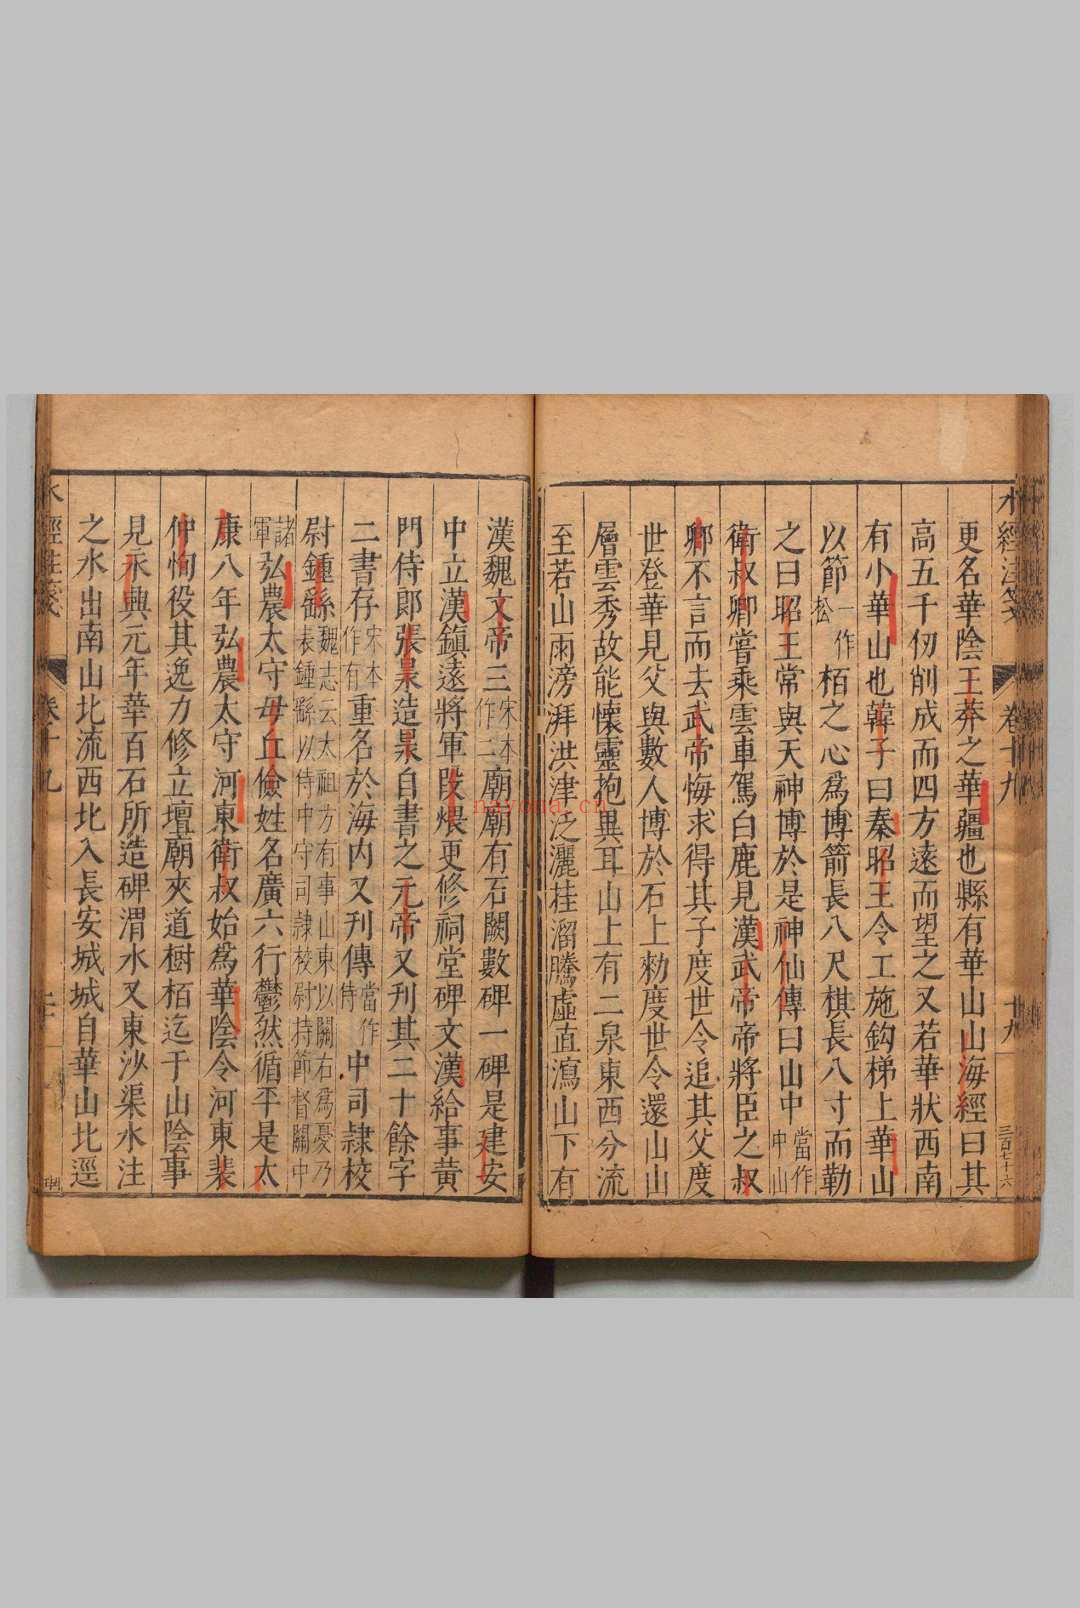 水經注箋 卷十九 十九 三百七十六
更名華陰王莽之華疆也縣有華山山海經曰其
高五千仞削成而四方遠而望之又若華狀西南
有小華山也韓子曰秦昭王令工施鈎梯上華山
以節一作松栢之心爲博箭長八尺棋長八寸而勒
之曰昭王常與天神博於是神仙傳曰山中當作中山
衛叔卿嘗乘雲車駕白鹿見漢武帝帝將臣之叔
卿不言而去武帝悔求得其子度世令追其父度
世登華見父與數人博於石上勑度世令還山山
層雲秀故能懷靈抱異耳山上有二泉東西分流
至若山雨滂湃洪津泛灑桂溜騰虛直瀉山下有
漢魏文帝三宋本作二廟廟有石闕數碑一碑是建安
中立漢鎮遠將軍段煨更修祠堂碑文漢給事黃
門侍郎張㫤造㫤自書之元帝又刊其二十餘字
二書存宋本作有重名於海內又刊傳當作侍中司隷校
尉鍾繇魏志云太祖方有事山東以關右爲憂乃表鍾繇以侍中守司隷校尉持節督關中
諸軍弘農太守毋丘儉姓名廣六行鬱然循平是太
康八年弘農太守河東衛叔始爲華陰令河東裴
仲恂役其逸力修立壇廟夾道樹栢迄于山陰事
見永興元年華百石所造碑渭水又東沙渠水注
之水出南山北流西北入長安城城自華山北逕
水經注箋 卷十九